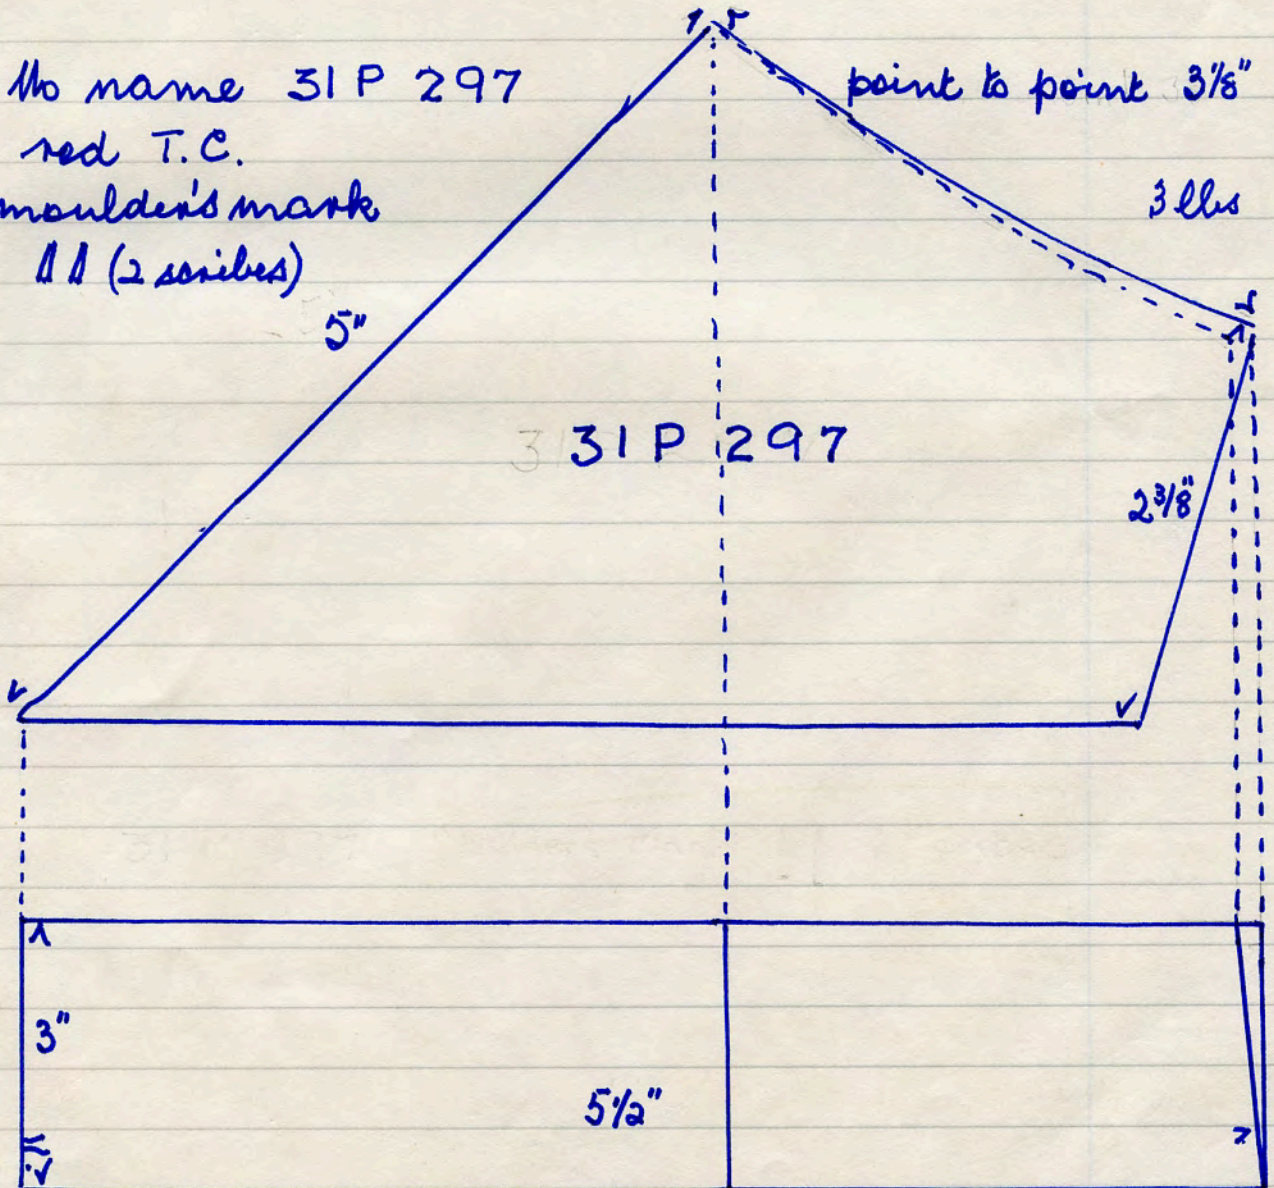 No name 31P 297
red T.C.
moulder's mark
(2 scribes)
point to point 3 1/8"
3 lbs
5"
31P 297
2 3/8"
3"
5 1/2"